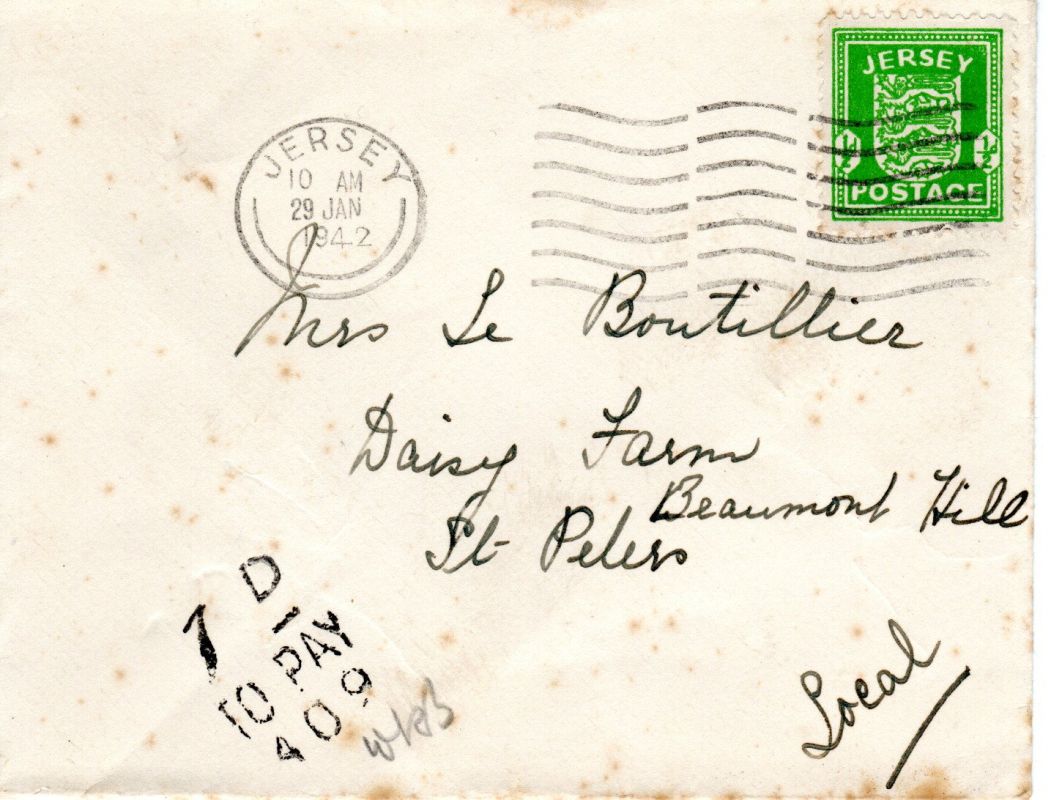 JERSEY
½ ½
POSTAGE
JERSEY
10 AM
29 JAN
1942
Mrs Le Boutillier
Daisy Farm
Beaumont Hill
St Peters
1 D
TO PAY
409
Local